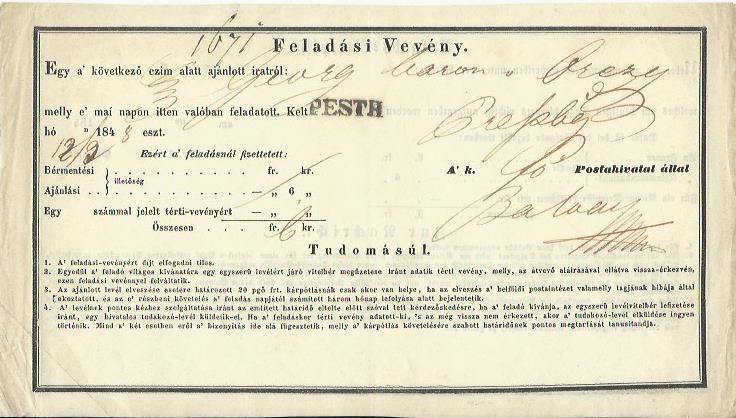 1671
Feladási Vevény.
Egy a' következő czim alatt ajánlott iratról: Georg baron v Orczy
melly e' mai napon itten valóban feladatott. Kelt PESTH
hó 12/2 n 1848 eszt.
Ezért a' feladásnál fizettetett:
Bérmentési . . . . . . . . . . fr. kr.
illetőség A' k. Postahivatal által
Ajánlási . . . . . . . . . . — „ 6 „
Egy számmal jelelt térti-vevényért — „ „
Összesen . . . . . . fr. 6 kr.
Tudomásúl.
1. A' feladási-vevényért díjt elfogadni tilos.
2. Egyedül a' feladó világos kivánatára egy egyszerű levélért járó vitelbér megfizetese iránt adatik térti vevény, melly, az átvevő aláirásával ellátva vissza-érkezvén,
ezen feladási vevénnyel felváltatik.
3. Az ajánlott levél elveszése esetére határozott 20 pgő frt. kárpótlásnák csak akor van helye, ha az elveszés a' belföldi postaintézet valamelly tagjának hibája által
okoztatott, és az e' részbeni követelés a' feladás napjától számított három hónap lefolyása alatt bejelentetik.
4. A' levélnek pontos kézhez szolgáltatása iránt az említett határidő eltelte előtt szóval tett kérdezősködésre, ha a' feladó kivánja, az egyszerű levélvitelbér lefizetése
iránt, egy hivatalos tudakozó-levél küldetik-el. Ha a' feladáskor térti vevény adatott-ki, 's az még vissza nem érkezett, akor a' tudakozó-levél elküldése ingyen
történik. Mind a' két esetben erről a' bizonyitás ide alá fügesztetik, melly a' kárpótlás követelésére szabott határidőnek pontos megtartását tanusitandja.